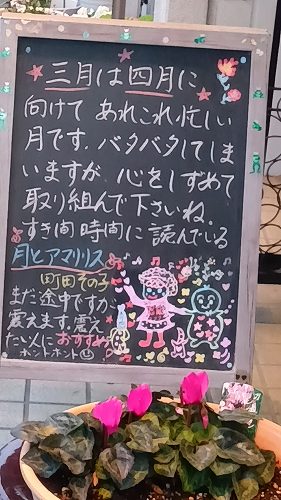 三月は四月に
向けてあれこれ忙しい
月です。バタバタしてしま
いますが、心をしずめて
取り組んで下さいね。
すき間時間に読んでいる
月とアマリリス
町田その子
まだ途中ですが、
震えます。震え
たい人におすすめ
ホントホント